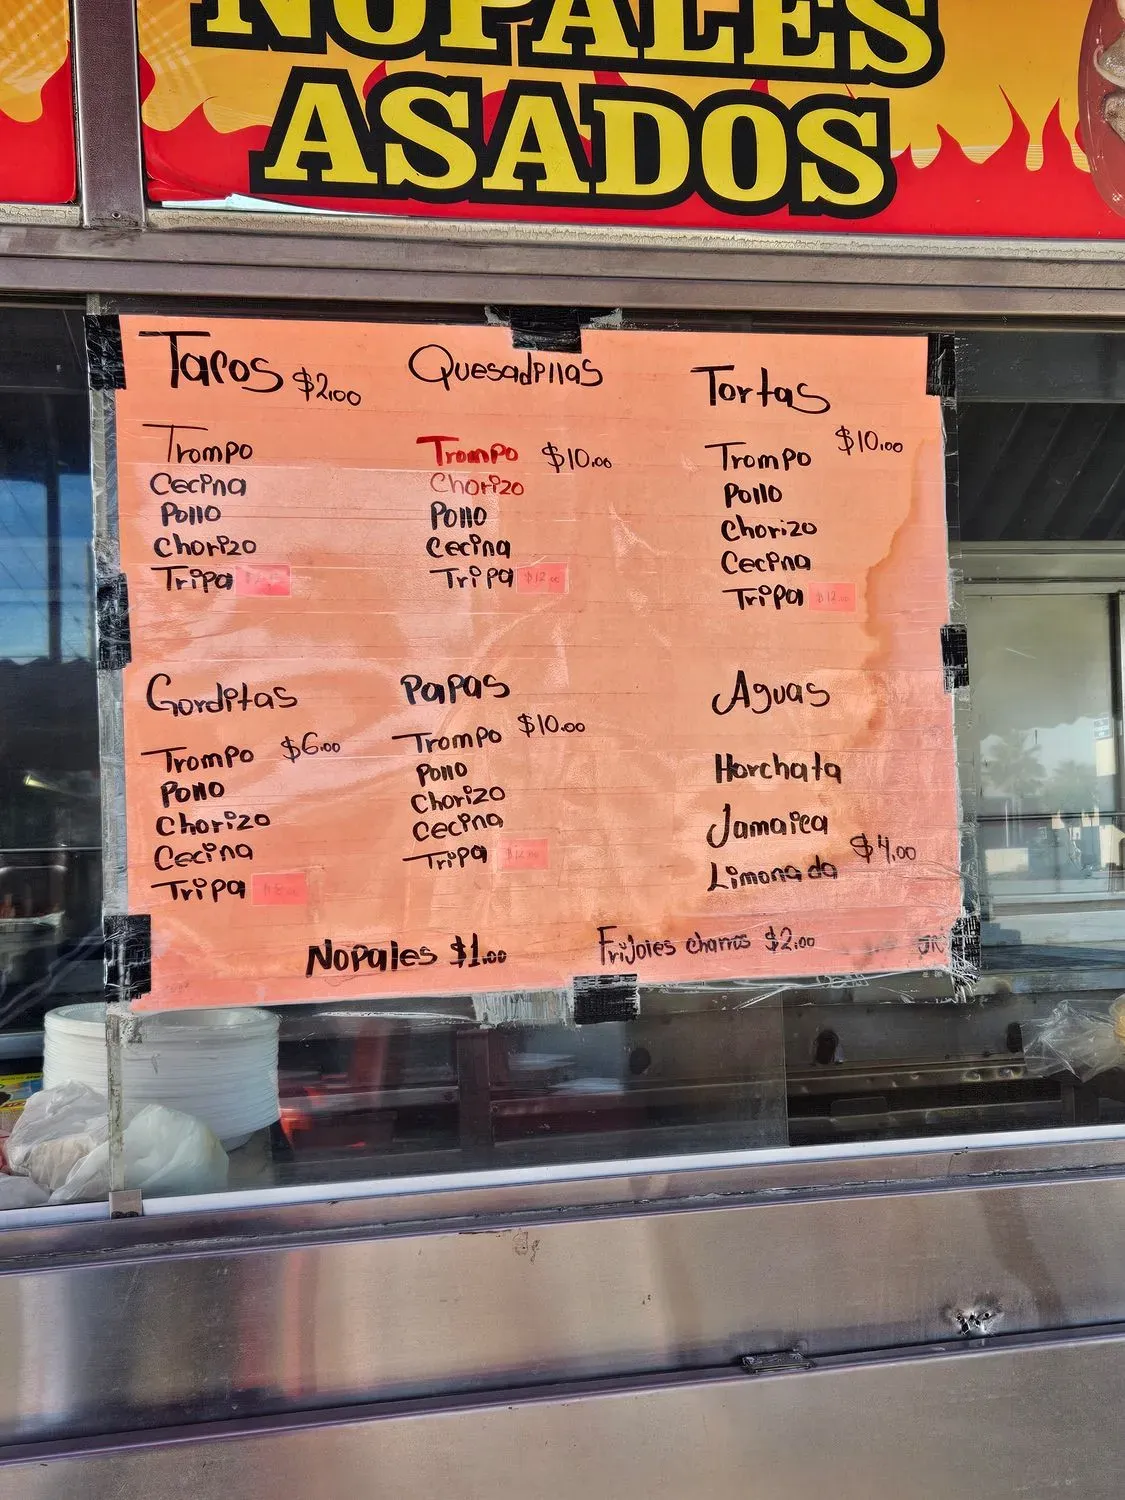 NOPALES
ASADOS
Tacos $2.00
Trompo
Cecina
Pollo
Chorizo
Tripa
Quesadillas
Trompo $10.00
Chorizo
Pollo
Cecina
Tripa $12.00
Tortas
$10.00
Trompo
Pollo
Chorizo
Cecina
Tripa $12.00
Gorditas
Trompo $6.00
Pollo
Chorizo
Cecina
Tripa
Papas
Trompo $10.00
Pollo
Chorizo
Cecina
Tripa
Aguas
Horchata
Jamaica
$4.00
Limonada
Nopales $1.00
Frijoles charros $2.00